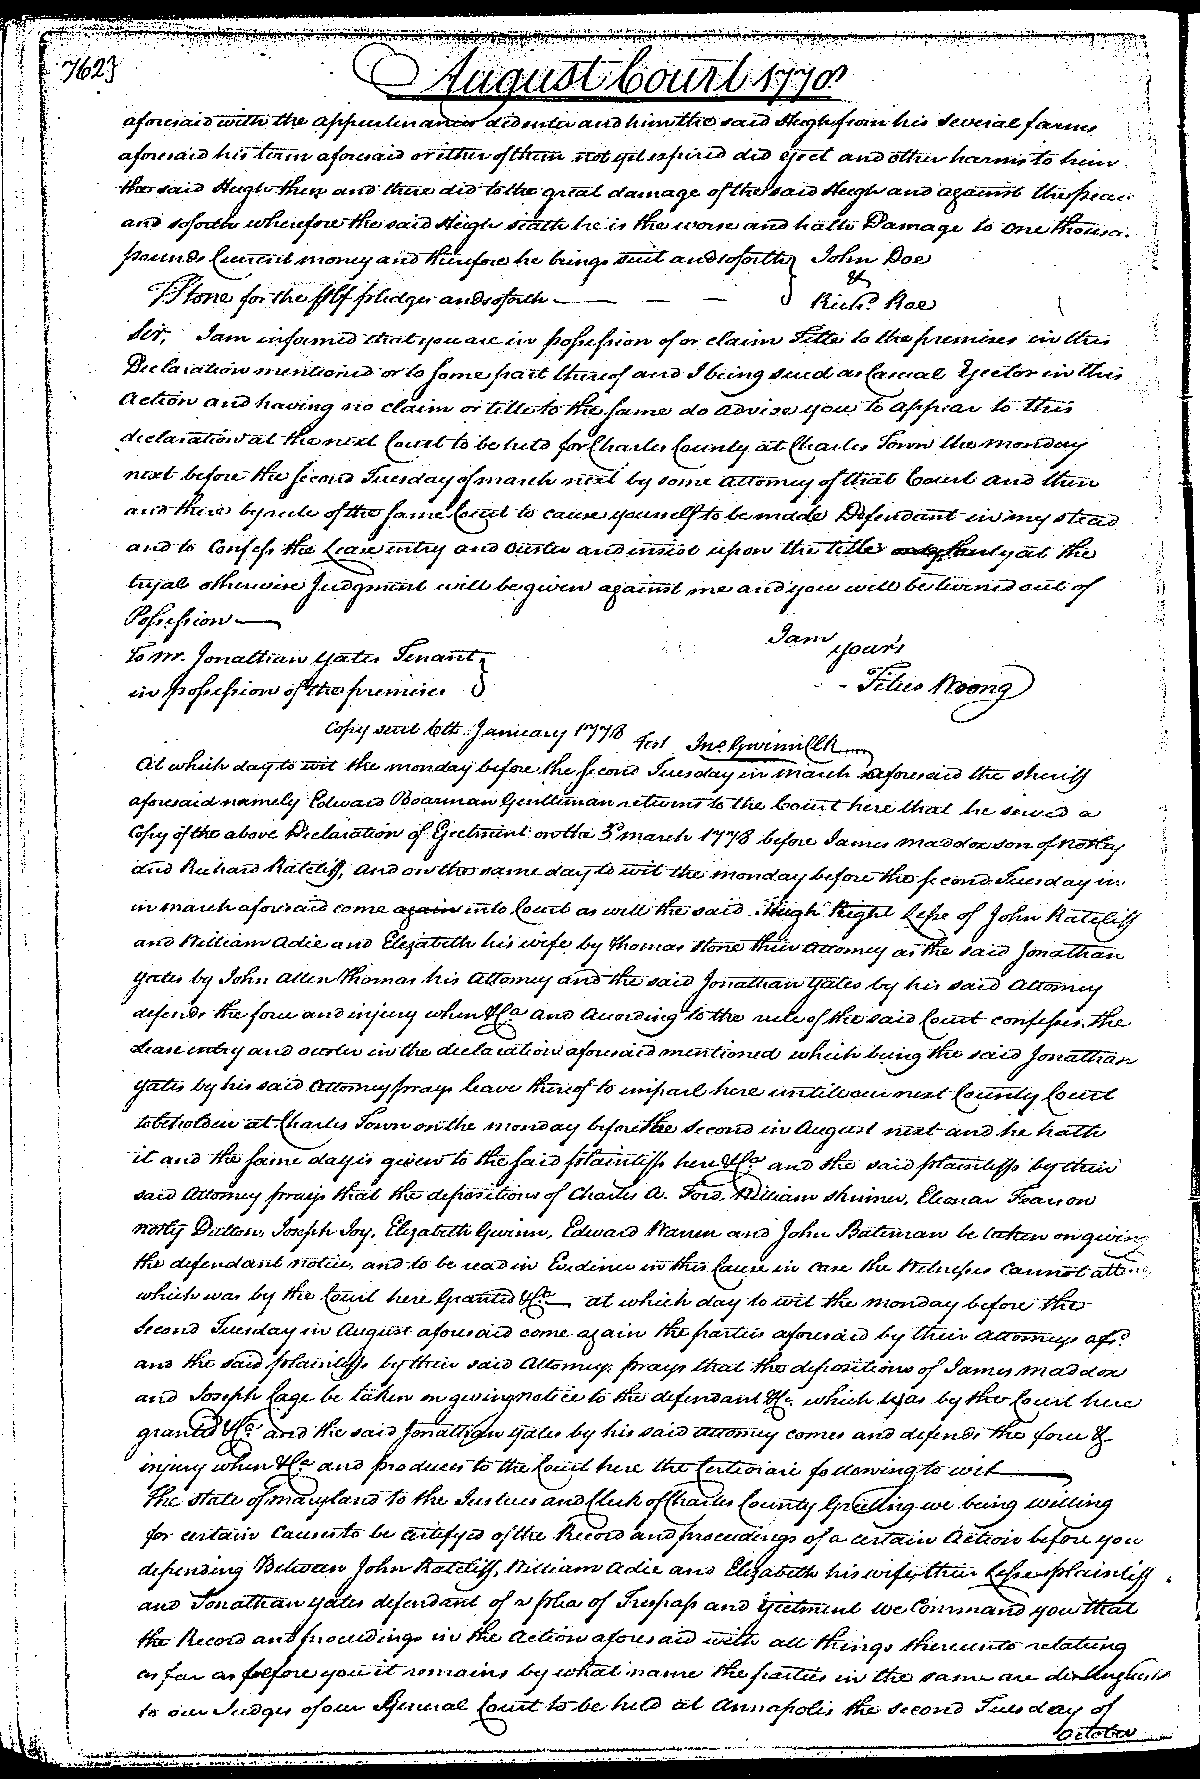 762}
August Court 1778
aforesaid with the appurtenances did enter and him the said Hugh from his several farms
aforesaid his term aforesaid or either of them not yet expired did eject and other harms to him
the said Hugh then and there did to the great damage of the said Hugh and against the peace
and soforth wherefore the said Hugh saith he is the worse and hath Damage to one thousa
pounds Current money and therefore he brings suit and soforth } John Doe
&
TStone for the plf pledges and soforth — — — — } Richd. Roe
Sir, I am informed that you are in possession of or claim Title to the premises in this
Declaration mentioned or to some part thereof and I being sued as Casual Ejector in this
Action and having no claim or title to the same do advise you to appear to this
declaration at the next Court to be held for Charles County at Charles Town the monday
next before the second Tuesday of march next by some attorney of that Court and then
and there by rule of the same Court to cause yourself to be made Defendant in my stead
and to Confess the Lease entry and ouster and insist upon the title only at the
tryal otherwise Judgment will be given against me and you will be turned out of
Possession —
I am
yours
To Mr. Jonathan Yates Tenant }
in possession of the premises }
Titus Wrong
Copy sent 6th January 1778 Test Jno Gwinn Clk
At which day to wit the monday before the second Tuesday in march aforesaid the sheriff
aforesaid namely Edward Boarman Gentleman returns to the Court here that he served a
Copy of the above Declaration of Ejectment on the 5th march 1778 before James Maddox son of Notley
and Richard Ratcliff, and on the same day to wit the monday before the second Tuesday in
in march aforesaid come again into Court as well the said Hugh Right Lesse of John Ratcliff
and William Adie and Elizabeth his wife by Thomas Stone their attorney as the said Jonathan
Yates by John Allen Thomas his Attorney and the said Jonathan Yates by his said Attorney
defends the force and injury when &Ca and according to the rule of the said Court confesses the
Lease entry and ouster in the declaration aforesaid mentioned which being the said Jonathan
Yates by his said attorney prays leave thereof to imparl here until our next County Court
to be holden at Charles Town on the monday before the second in August next and he hath
it and the same day is given to the said plaintiffs here &Ca and the said plaintiffs by their
said Attorney prays that the depositions of Charles A. Ford, William Shirmer, Eleonar Fearson
Notly Dutton, Joseph Joy, Elizabeth Gwinn, Edward Warren and John Bateman be taken on giving
the defendant notice and to be read in Evidence in this Cause in case the Witnesses cannot attend
which was by the Court here Granted &Ca — at which day to wit the monday before the
Second Tuesday in August aforesaid come again the parties aforesaid by their attorneys afsd.
and the said plaintiffs by their said Attorney, prays that the depositions of James Maddox
and Joseph Cage be taken on giving notice to the defendant &Ca which was by the Court here
granted &Ca and the said Jonathan Yates by his said attorney comes and defends the force &
injury when &Ca and produces to the Court here the Certiorari following to wit —
The State of Maryland to the Justices and Clerk of Charles County Greeting we being willing
for certain causes to be certifyed of the Record and proceedings of a certain Action before you
depending Between John Ratcliff, William Adie and Elizabeth his wife, their Lesse plaintiff
and Jonathan Yates defendant of a plea of Trespass and Ejectment we Command you that
the Record and proceedings in the Action aforesaid with all things thereunto relating
as far as before you it remains by what name the parties in the same are distinguished
to our Judges of our General Court to be held at Annapolis the second Tuesday of
October